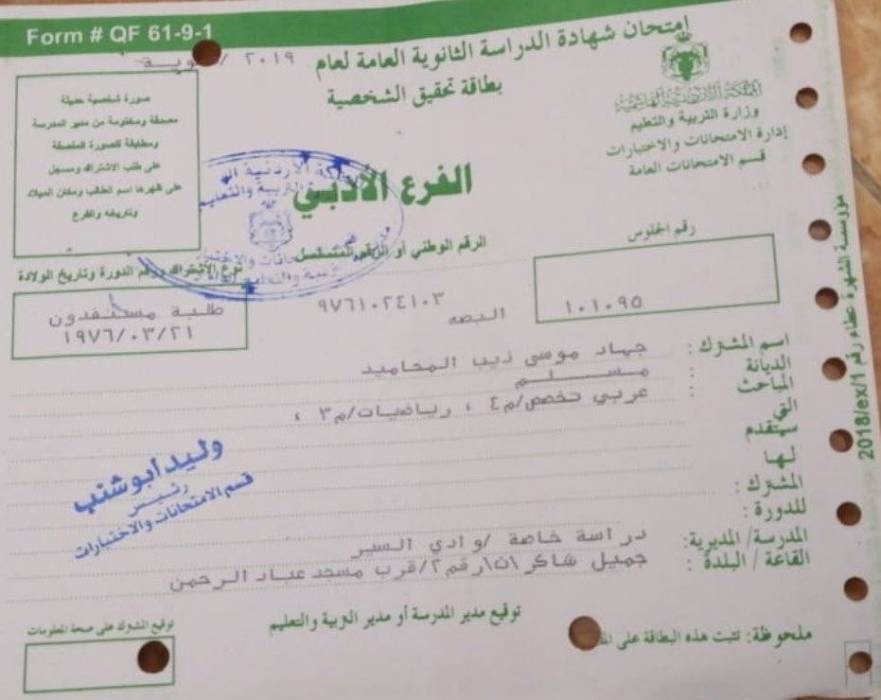 Form # QF 61-9-1
امتحان شهادة الدراسة الثانوية العامة لعام ٢٠١٩ /
بطاقة تحقيق الشخصية
المملكة الأردنية الهاشمية
وزارة التربية والتعليم
إدارة الامتحانات والاختبارات
قسم الامتحانات العامة
صورة شخصية حديثة
مصدقة ومختومة من مدير المدرسة
ومطابقة للصورة الملصقة
على طلب الاشتراك ومسجل
على ظهرها اسم الطالب ومكان الميلاد
وتاريخه والفرع
الفرع الأدبي
رقم الجلوس
١٠١٠٩٥
الرقم الوطني أو الرقم المتسلسل
٩٧٦١٠٢٤١٠٣
البصمه
نوع الاشتراك ورقم الدورة وتاريخ الولادة
طلبة مستنفدون
١٩٧٦/٠٣/٢١
اسم المشترك : جهاد موسى ذيب المحاميد
الديانة : مسلم
المباحث : عربي تخصص/م٤ ، رياضيات/م٣ ،
التي
سيتقدم
لها
المشترك :
للدورة :
المدرسة/ المديرية: دراسة خاصة /وادي السير
القاعة / البلدة : جميل شاكر\ث\رقم٢/قرب مسجد عباد الرحمن
وليد أبو شنب
رئيس
قسم الامتحانات والاختبارات
توقيع مدير المدرسة أو مدير التربية والتعليم
توقيع المشترك على صحة المعلومات
ملحوظة: تثبت هذه البطاقة على
مؤسسة الشهرة عطاء رقم 2018/ex/1